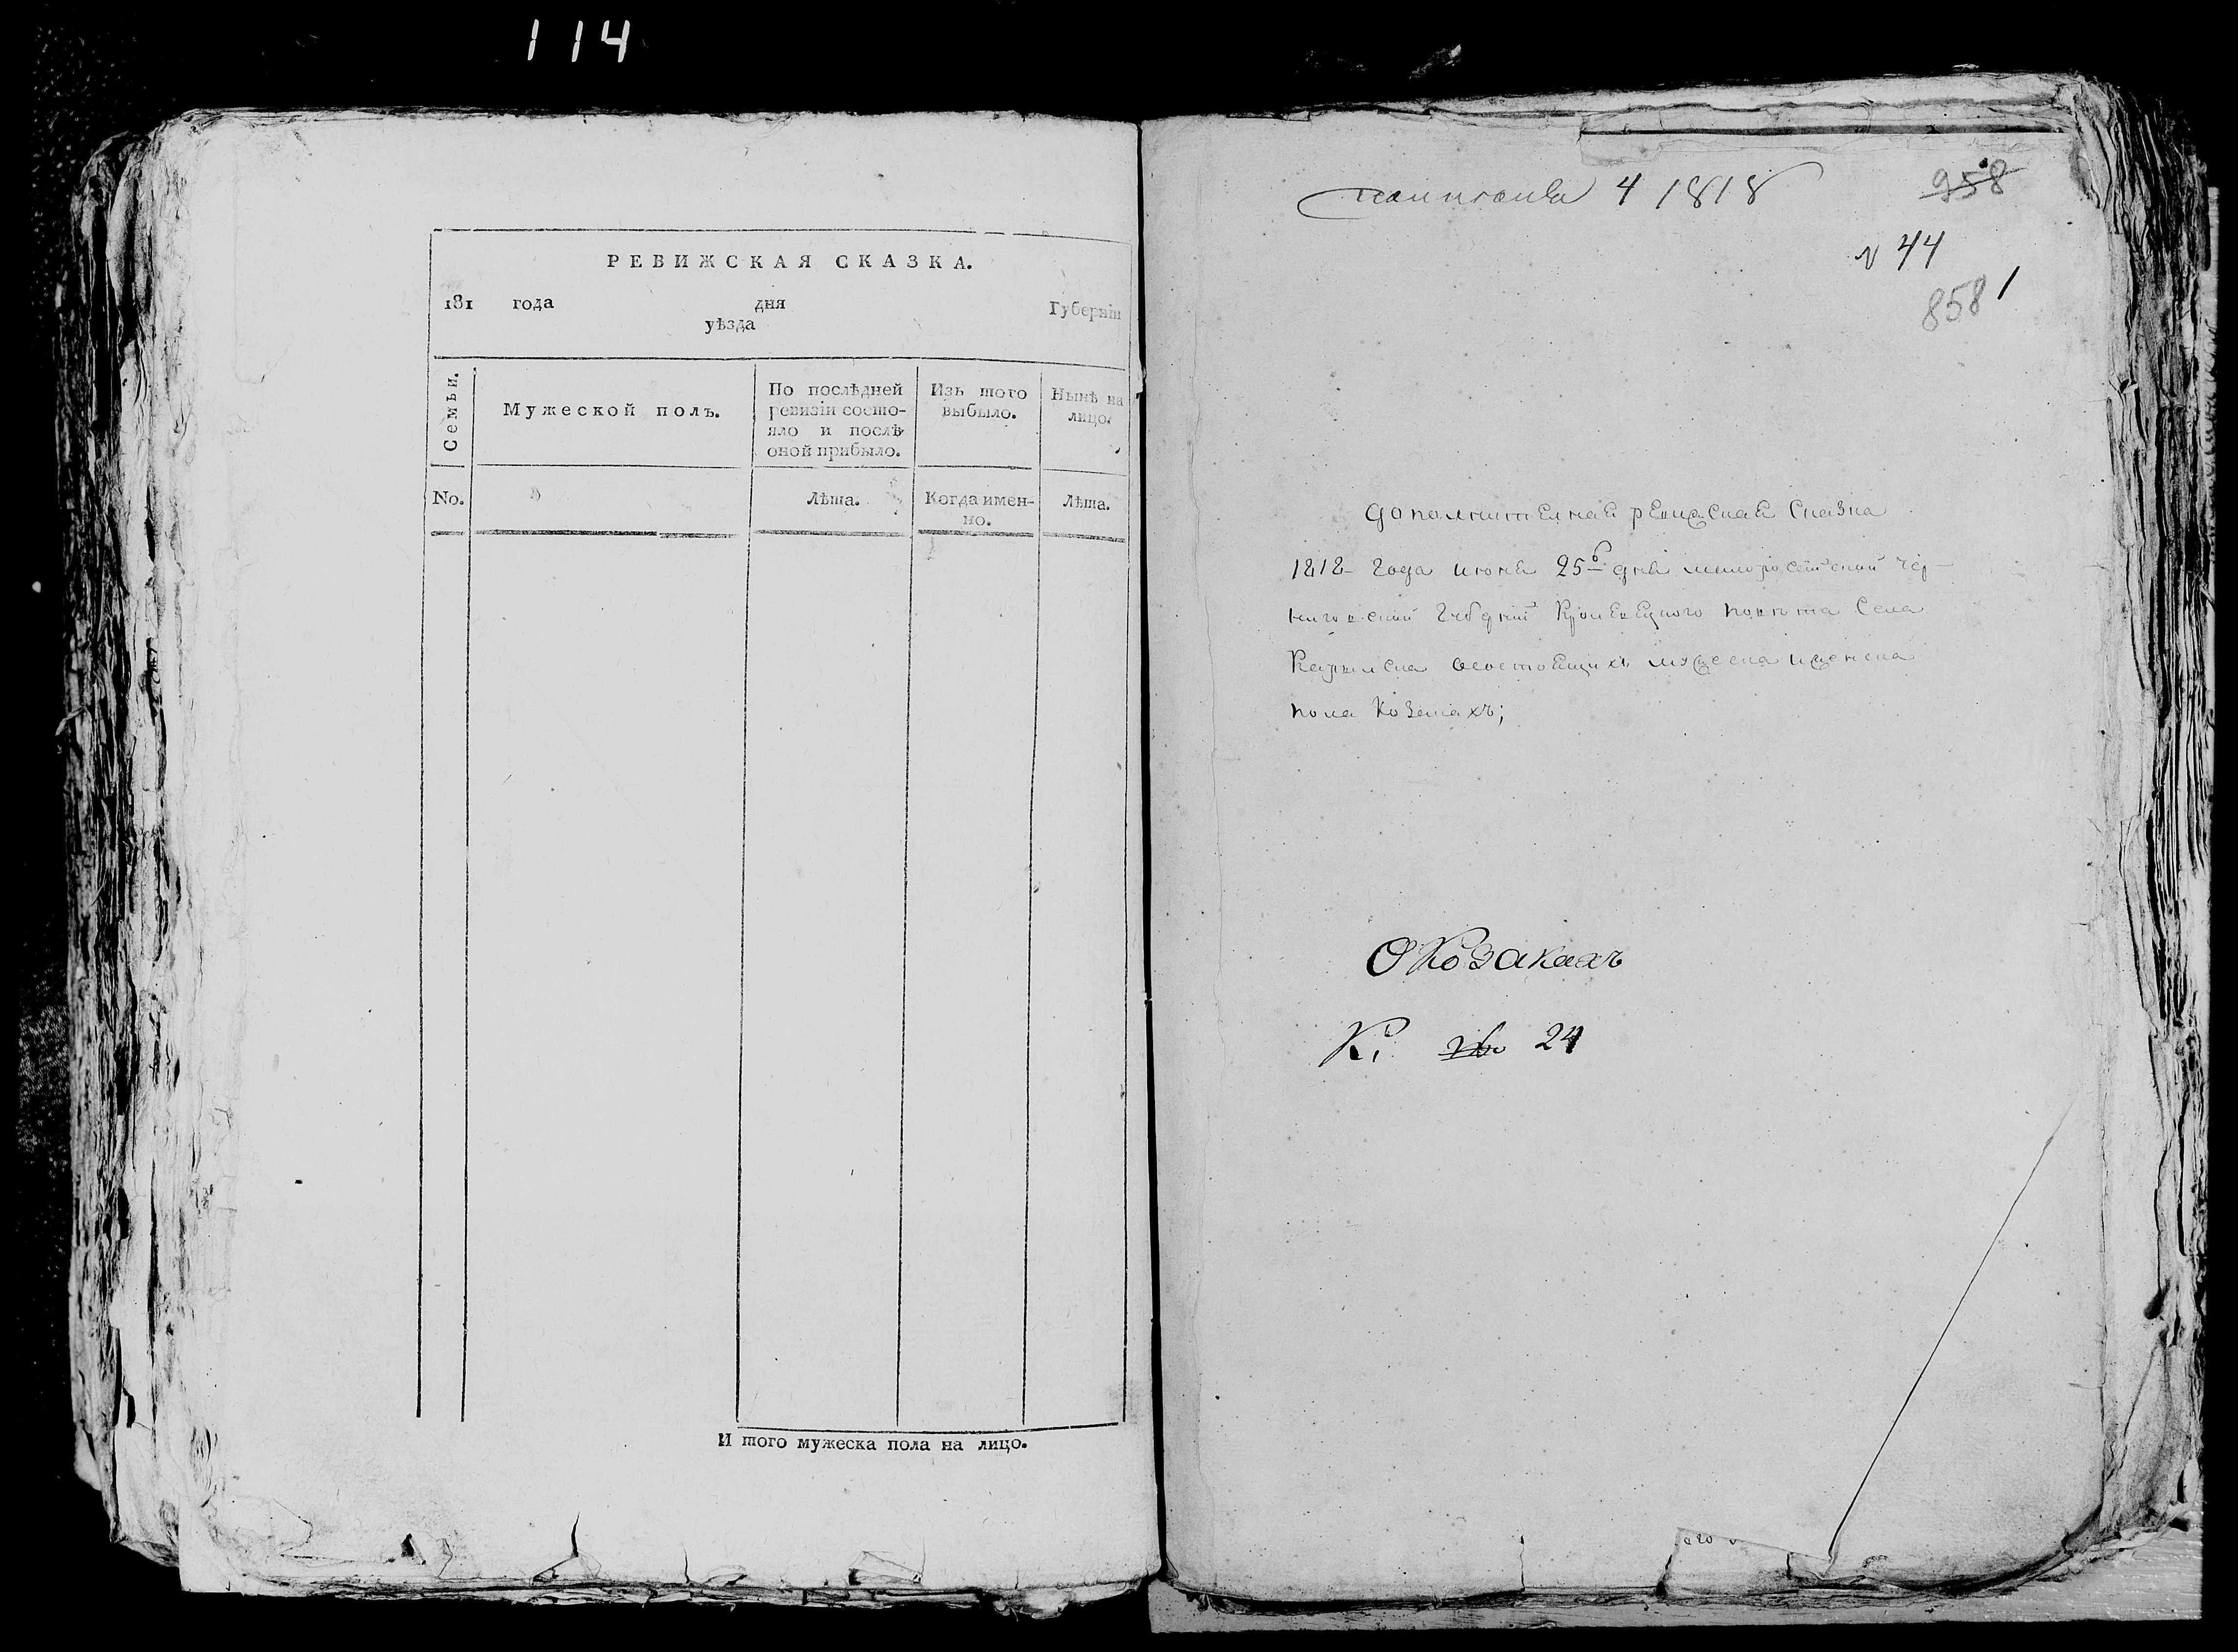 114
РЕВИЖСКАЯ СКАЗКА.
181 года дня Губерніи
уѣзда
Семьи.
Мужеской полъ.
По послѣдней ревизіи состояло и послѣ оной прибыло.
Изъ того выбыло.
Нынѣ на лицо.
No.
Лѣта.
Когда именно.
Лѣта.
И того мужеска пола на лицо.
4 1818
958
N 44
858 1
Дополнителная ревизская сказка
1818 года июня 25 дня малоросійской Чер-
ниговской губерній Кролевецкого повета села
состоящихъ мужеска и женска
пола козакахъ;
О Козакахъ
К. 24